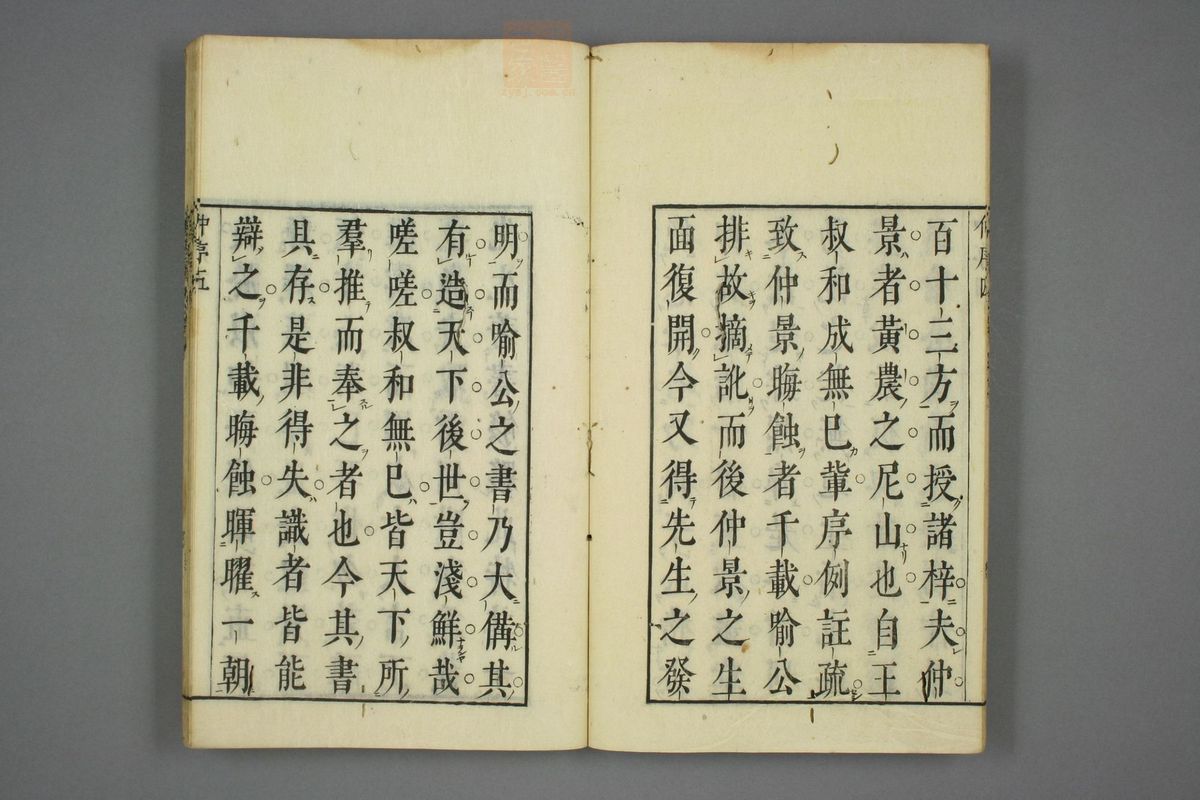 百十三方而授諸梓夫仲
景者黃農之尼山也自王
叔和成無已輩序例註疏
致仲景晦蝕者千載喻公
排故摘訛而後仲景之生
面復開今又得先生之發
明而喻公之書乃大備其
有造天下後世豈淺鮮哉
嗟嗟叔和無已皆天下所
羣推而奉之者也今其書
具存是非得失識者皆能
辯之千載晦蝕暉曜一朝
仲序五